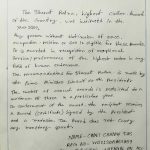 The Bharat Ratna, highest civilian Award
of the country, was instituted in the
year 1954.
Any person without distinction of race,
occupation, position or sex is eligible for these Awards.
It is awarded in recognition of exceptional
service/performance of the highest order in any
field of human endeavour.
The recommendations for Bharat Ratna is made by
the Prime Minister himself to the President.
The number of annual awards is restricted to a
maximum of three in a particular year.
On conferment of the award, the recipient receives
a Sanad (certificate) signed by the President
and a medallion. The Award does not carry
any monetary grant.
NAME:
REG NO: